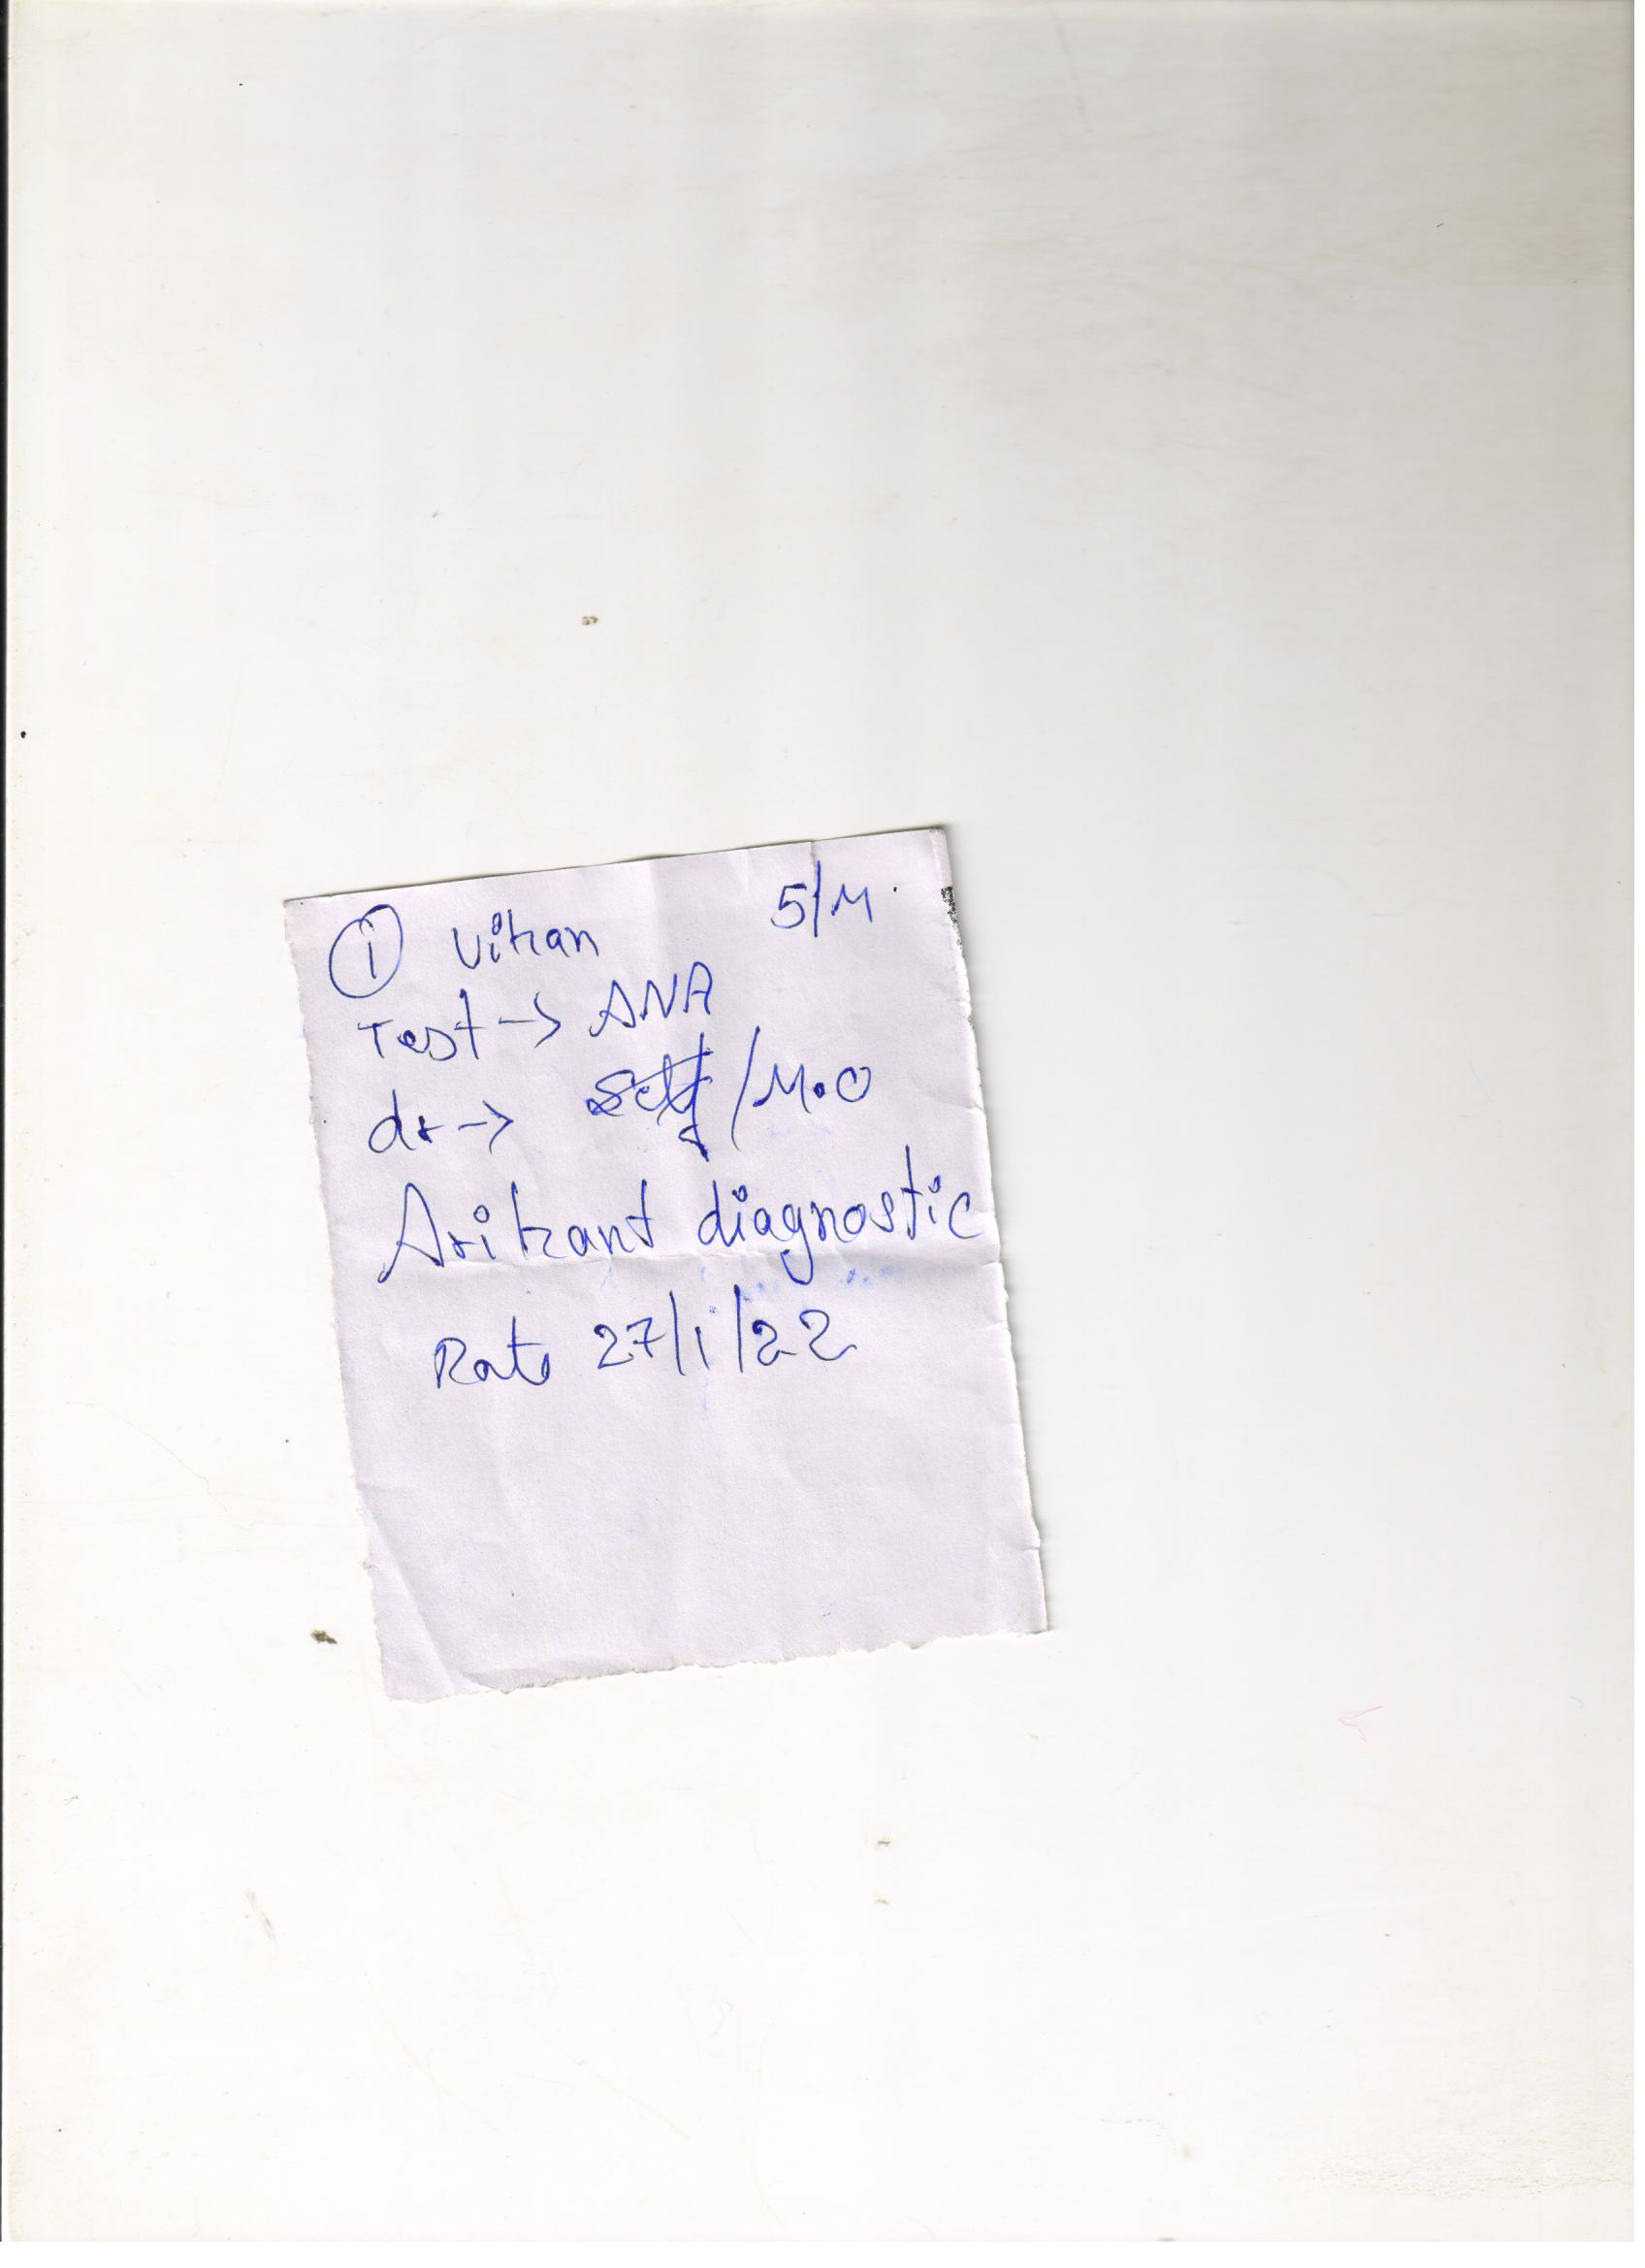 ① Vihan 5/M.
Test → ANA
dr → Self /M.O
Arihant diagnostic
Rate 27/1/22